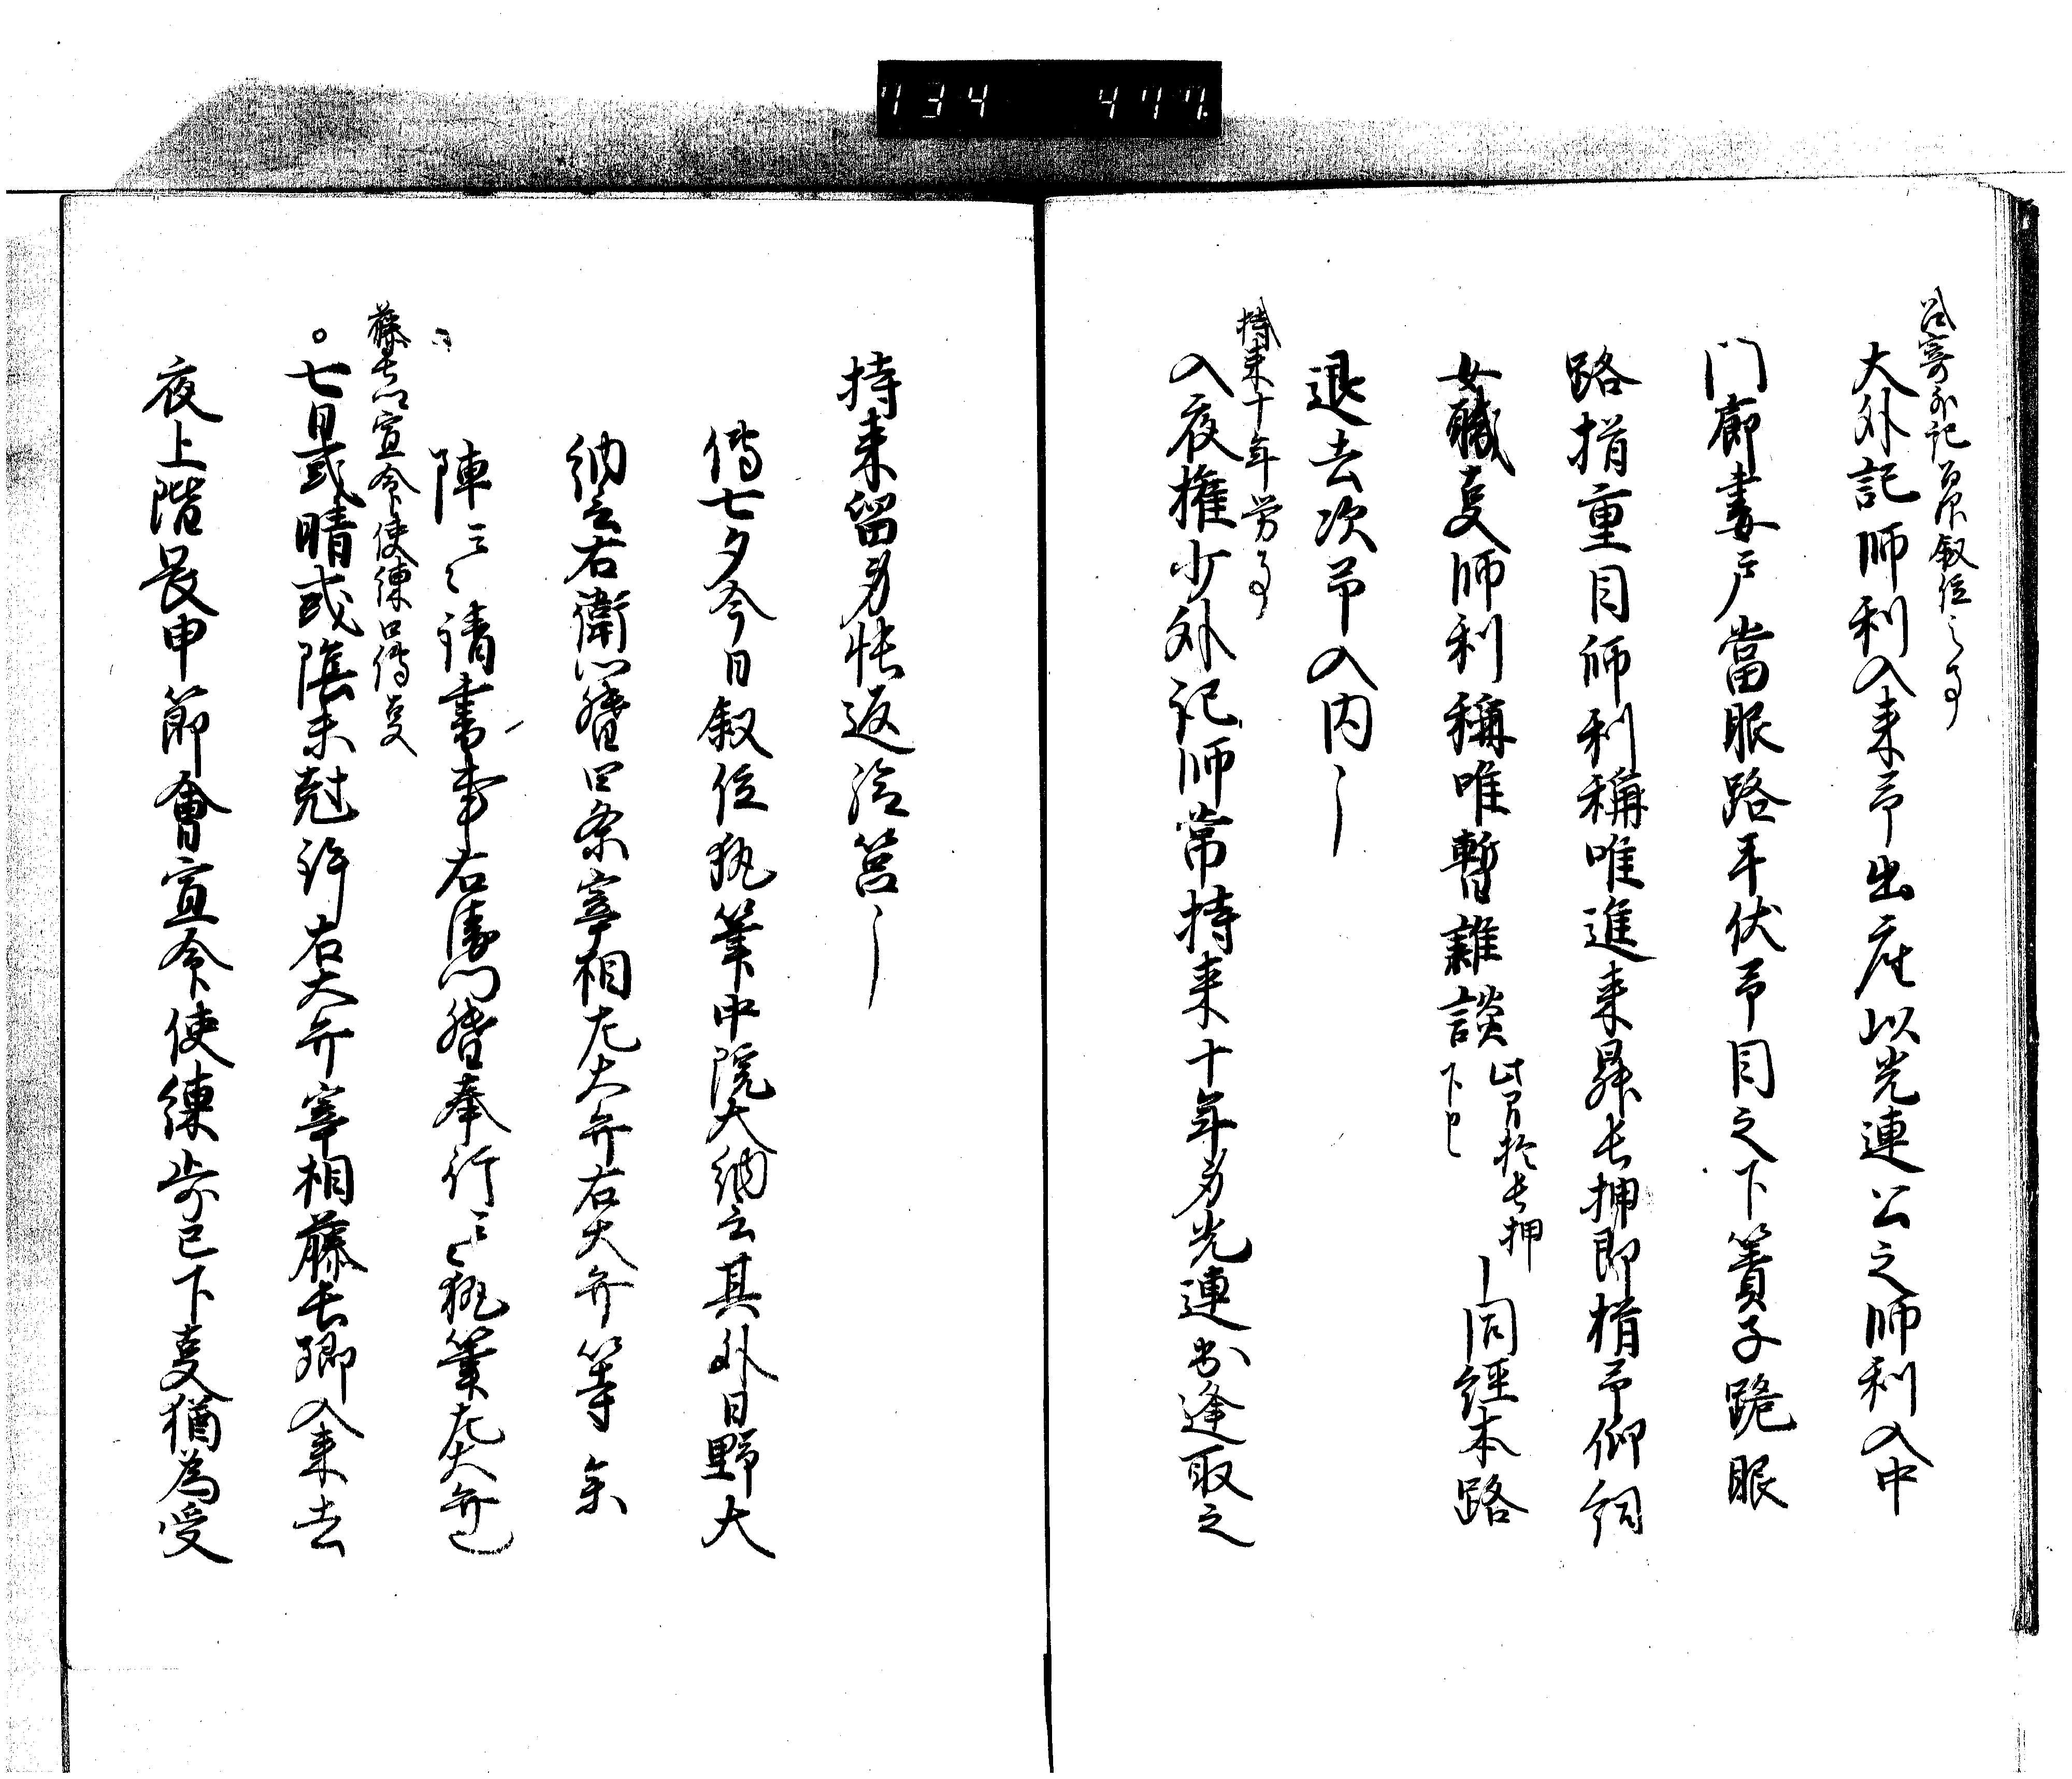 734 477
大外記師利入来予出座以光連公之師利入中
門廊妻戸當眼路平伏予目之下簀子跪眼
路揖重目師利稱唯進来昇長押即揖予仰詞
女職事師利稱唯暫雑談
此間於長押
下也
同経本路
退去次予入内
持来十年労事
入夜権少外記師常持来十年労光連出逢取之
持来留労帳返給筥
傳七夕今日叙位執筆中院大納言其外日野大
納言右衛門督四条宰相左大弁右大弁等参
陣云々請書事右衛門督奉行云々執筆左大弁
藤長卿宣命使練口傳事
七日或晴或陰未剋許右大弁宰相藤長卿入来去
夜上階畏申節會宣命使練歩已下事猶為受